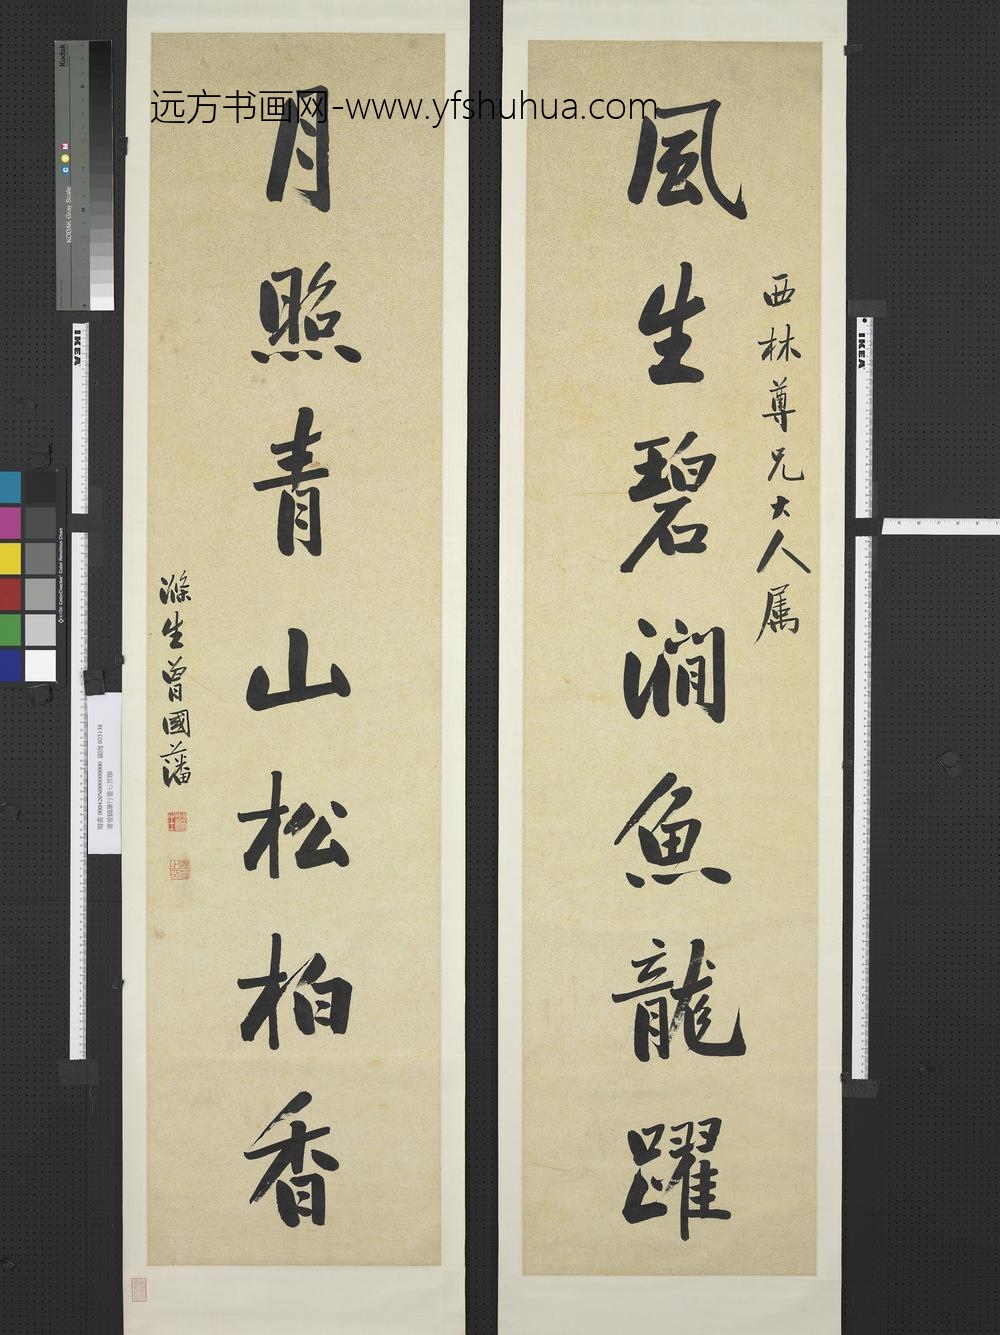 远方书画网-www.yfshuhua.com
西林尊兄大人属
風生碧澗魚龍躍
月照青山松柏香
滌生曾國藩
Kodak
KODAK Gray Scale
C
M
IKEA
IKEA